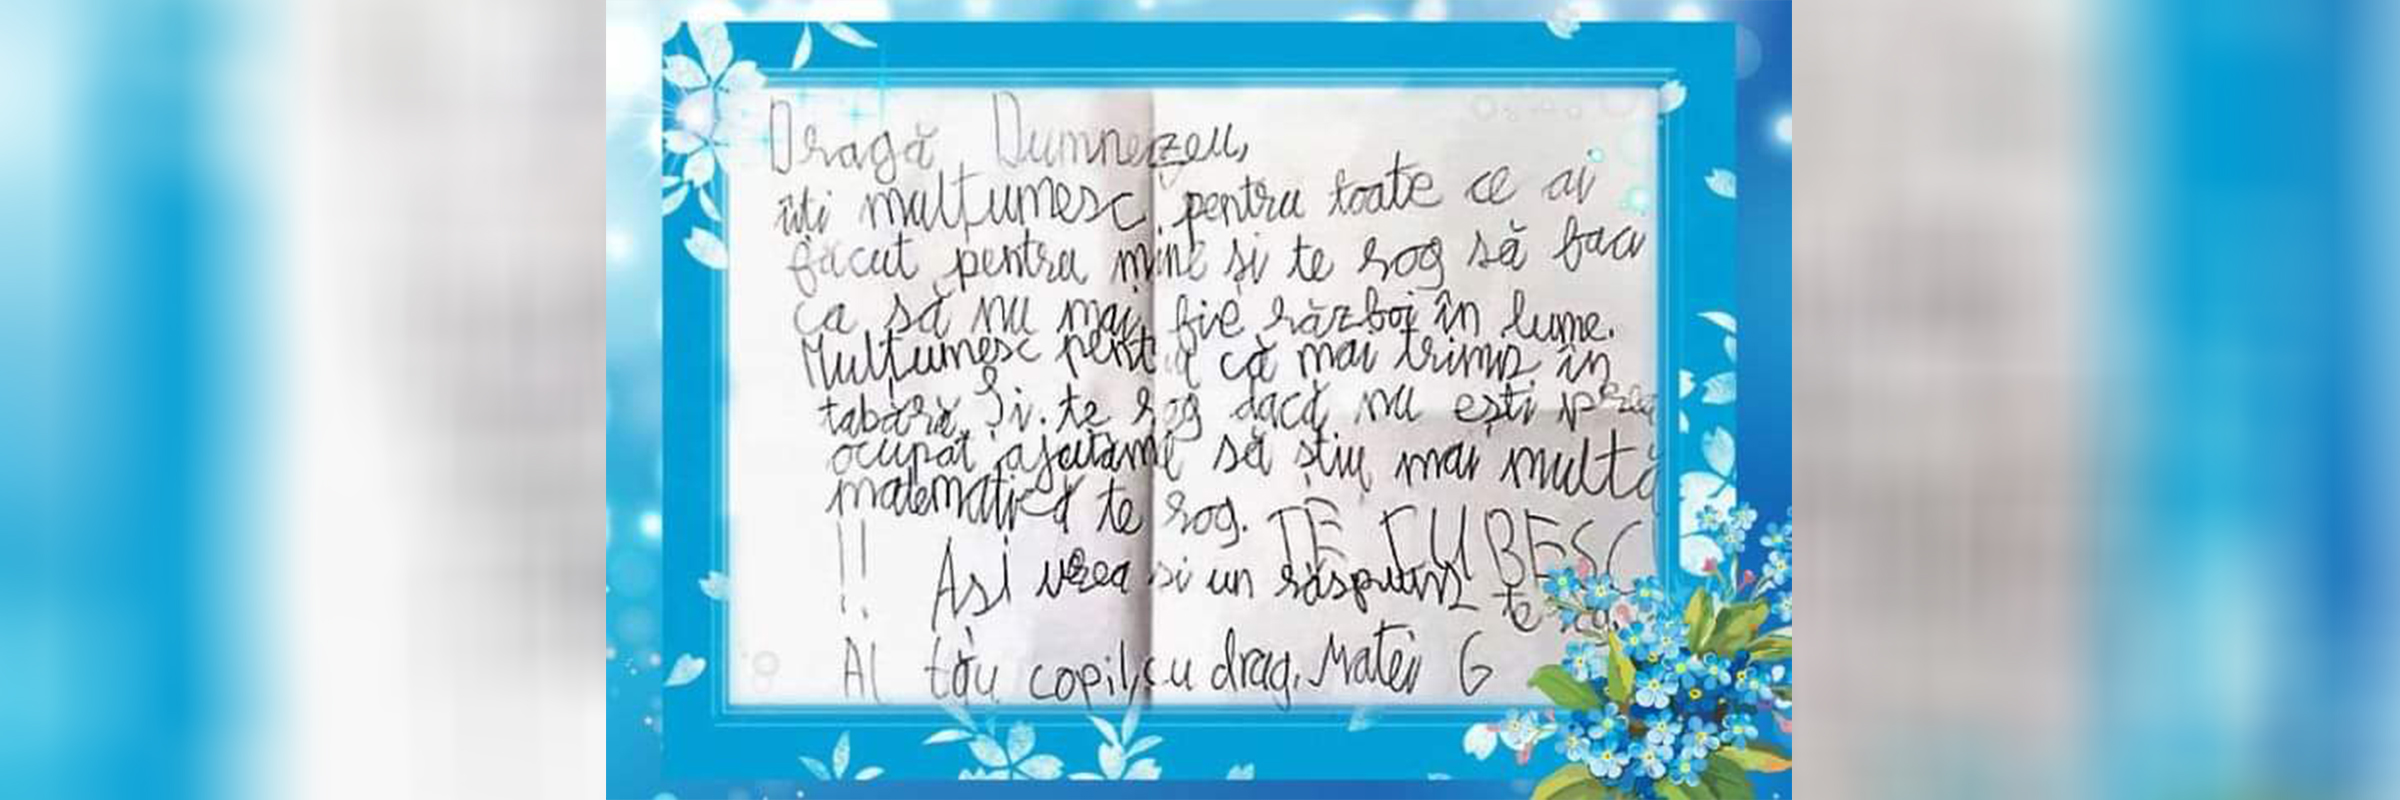 Dragă Dumnezeu,
îți mulțumesc pentru toate ce ai
făcut pentru mine și te rog să faci
ca să nu mai fie război în lume.
Mulțumesc pentru că mai trimis în
tabără. Și te rog dacă nu ești prea
ocupat ajutămă să știu mai multă
matematică te rog. TE IUBESC
!! Asi vrea si un răspuns te rog.
Al tău copil, cu drag, Matei G